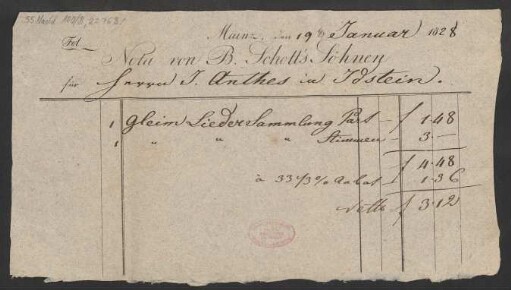 Mainz, den 19 Januar 1828
Fol.
Nota von B. Schott's Söhnen
für Herrn J. Anthes in Idstein.
1 Gleim Lieder Sammlung Part — f 1.48
1 " " " Stimmen — 3.—
f 4.48
à 33 1/3 % Rabat — 1.36
Netto f 3.12